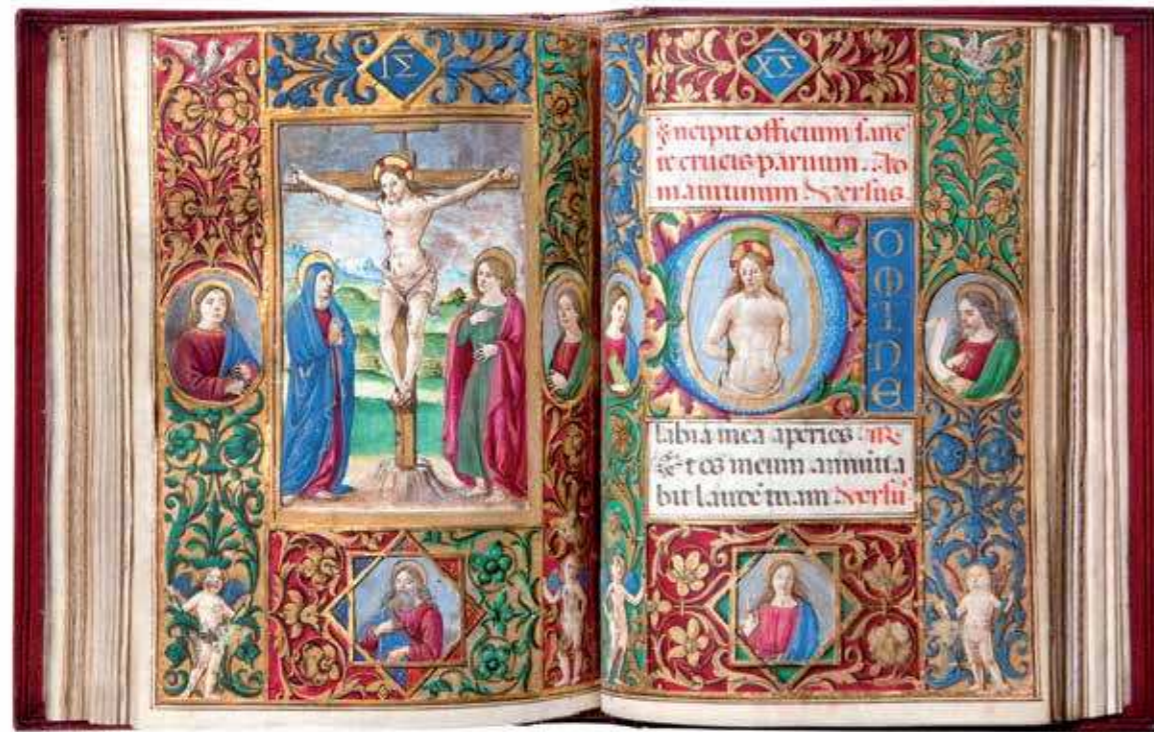 ΙΣ
ΧΣ
Incipit officium sanc
te crucis paruum. Ad
matutinum Versus.
DOMINE
labia mea aperies. R
Et os meum annuncia
bit laudem tuam Versus